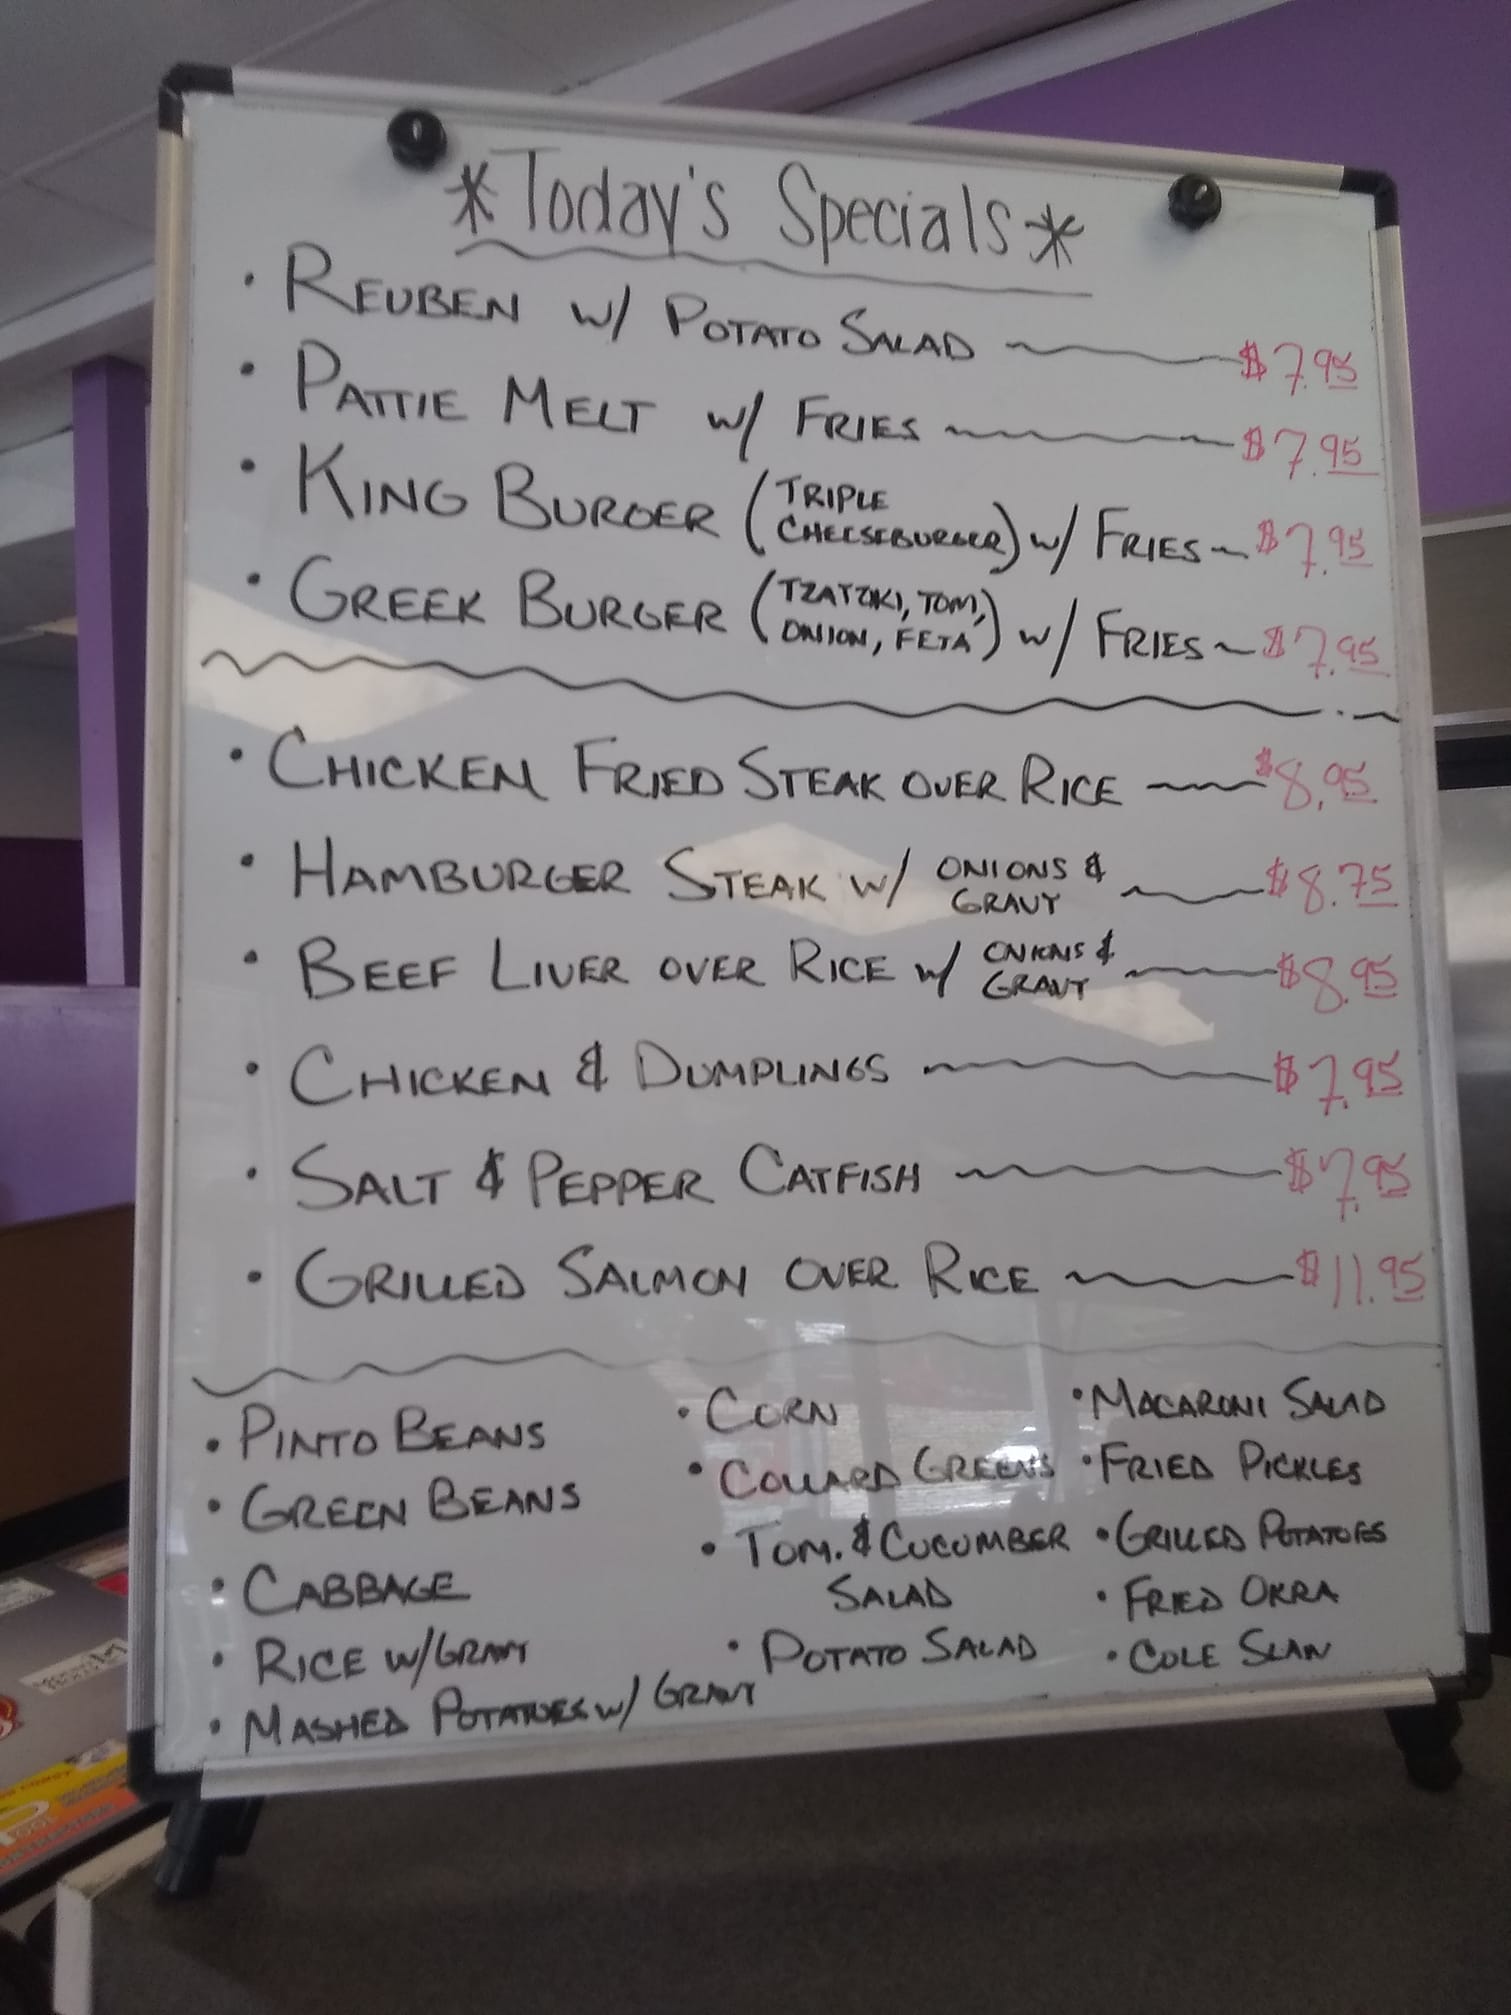 *Today's Specials*
• REUBEN W/ POTATO SALAD $7.95
• PATTIE MELT W/ FRIES $7.95
• KING BURGER (TRIPLE CHEESEBURGER) W/ FRIES $7.95
• GREEK BURGER (TZATZIKI, TOM, ONION, FETA) W/ FRIES $7.95
• CHICKEN FRIED STEAK OVER RICE $8.95
• HAMBURGER STEAK W/ ONIONS & GRAVY $8.75
• BEEF LIVER OVER RICE W/ ONIONS & GRAVY $8.95
• CHICKEN & DUMPLINGS $7.95
• SALT & PEPPER CATFISH $7.95
• GRILLED SALMON OVER RICE $11.95
• PINTO BEANS
• GREEN BEANS
• CABBAGE
• RICE W/GRAVY
• MASHED POTATOES W/ GRAVY
• CORN
• COLLARD GREENS
• TOM. & CUCUMBER
SALAD
• POTATO SALAD
• MACARONI SALAD
• FRIED PICKLES
• GRILLED POTATOES
• FRIED OKRA
• COLE SLAW